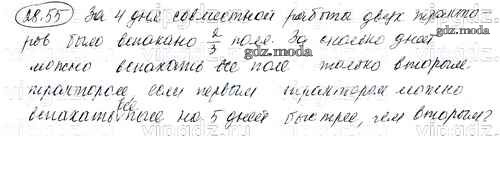 28.55 За 4 дня совместной работы двух тракто-
ров было вспахано 2/3 поля. За сколько дней
можно вспахать все поле только вторым
трактором, если первым трактором можно
вспахать все поле на 5 дней быстрее, чем вторым?
gdz.moda
gdz.moda